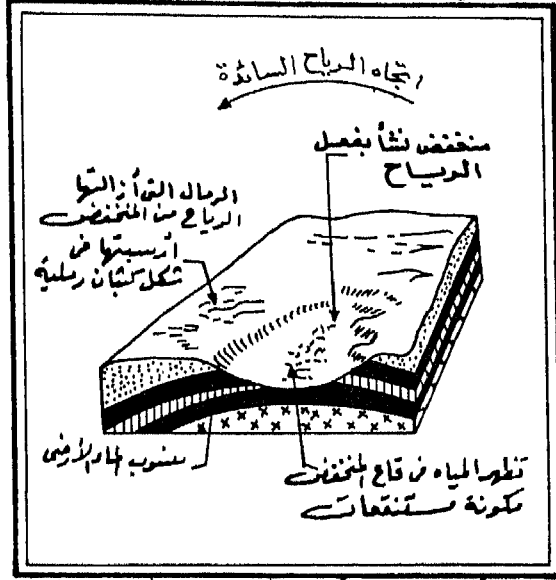 اتجاه الرياح السائدة
منخفض نشأ بفعل
الرياح
الرمال التى أزالتها
الرياح من المنخفض
أرسبتها فى
شكل كثبان رملية
منسوب الماء الأرضى
تظهر المياه فى قاع المنخفض
مكونة مستنقعات